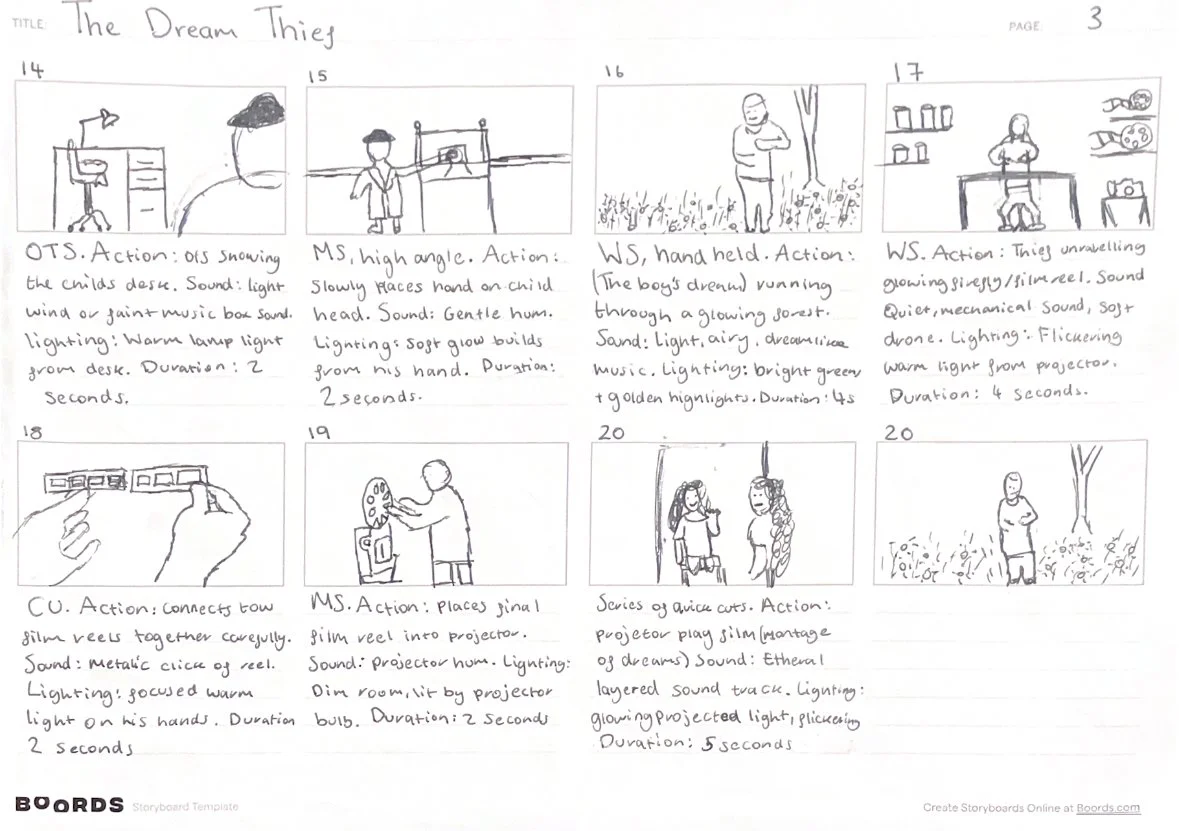 TITLE: The Dream Thief
PAGE: 3
14
OTS. Action: OTS showing
the childs desk. Sound: light
wind or faint music box sound.
lighting: Warm lamp light
from desk. Duration: 2
seconds.
15
MS, high angle. Action:
Slowly places hand on child
head. Sound: Gentle hum.
Lighting: Soft glow builds
from his hand. Duration:
2 seconds.
16
WS, hand held. Action:
(The boy's dream) running
through a glowing forest.
Sound: Light, airy, dreamlike
music. Lighting: bright green
+ golden highlights. Duration: 4s
17
WS. Action: Thief unravelling
glowing firefly/film reel. Sound
Quiet, mechanical sound, soft
drone. Lighting: Flickering
warm light from projector.
Duration: 4 seconds.
18
CU. Action: Connects tow
film reels together carefully.
Sound: Metalic click of reel.
Lighting: focused warm
light on his hands. Duration
2 seconds
19
MS. Action: Places final
film reel into projector.
Sound: Projector hum. Lighting:
Dim room, lit by projector
bulb. Duration: 2 seconds
20
Series of quick cuts. Action:
projetor play film (montage
of dreams) Sound: Etheral
layered sound track. Lighting:
glowing projected light, flickering
Duration: 5 seconds
20
BOORDS Storyboard Template
Create Storyboards Online at Boords.com